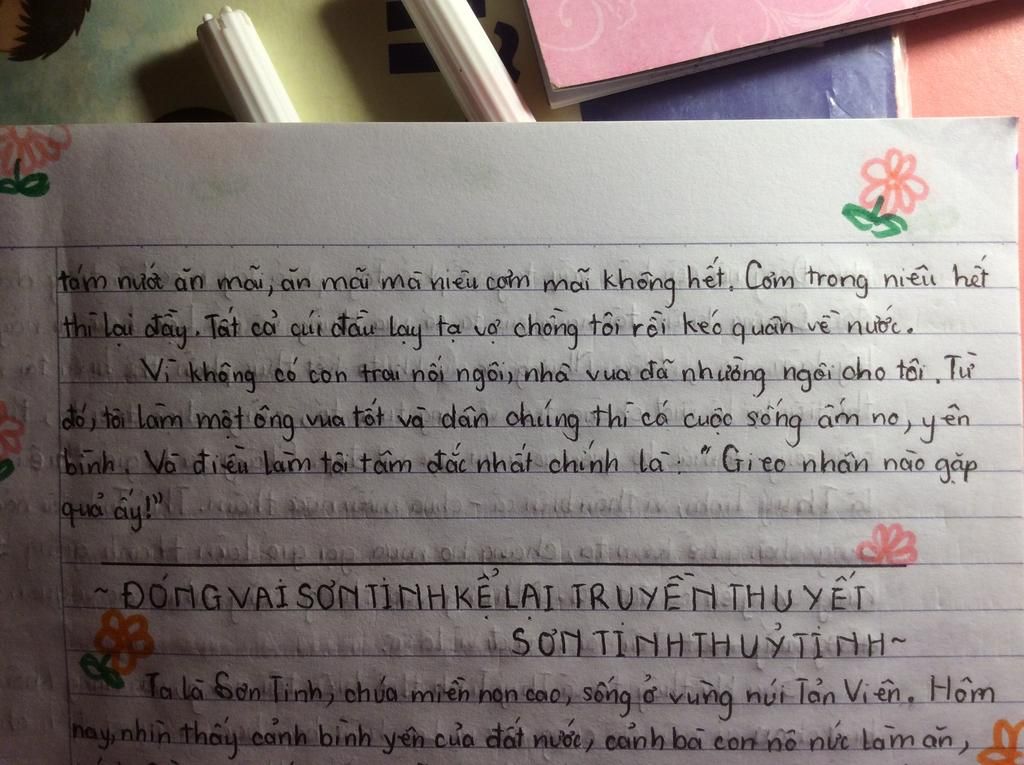 tám nước ăn mãi, ăn mãi mà niêu cơm mãi không hết. Cơm trong niêu hết
thì lại đầy. Tất cả cúi đầu lạy tạ vợ chồng tôi rồi kéo quân về nước.
Vì không có con trai nối ngôi, nhà vua đã nhường ngôi cho tôi. Từ
đó, tôi làm một ông vua tốt và dân chúng thì có cuộc sống ấm no, yên
bình. Và điều làm tôi tâm đắc nhất chính là: "Gieo nhân nào gặp
quả ấy!"
~ ĐÓNG VAI SƠN TINH KỂ LẠI TRUYỀN THUYẾT
SƠN TINH THUỶ TINH ~
Ta là Sơn Tinh, chúa miền non cao, sống ở vùng núi Tản Viên. Hôm
nay, nhìn thấy cảnh bình yên của đất nước, cảnh bà con nô nức làm ăn,